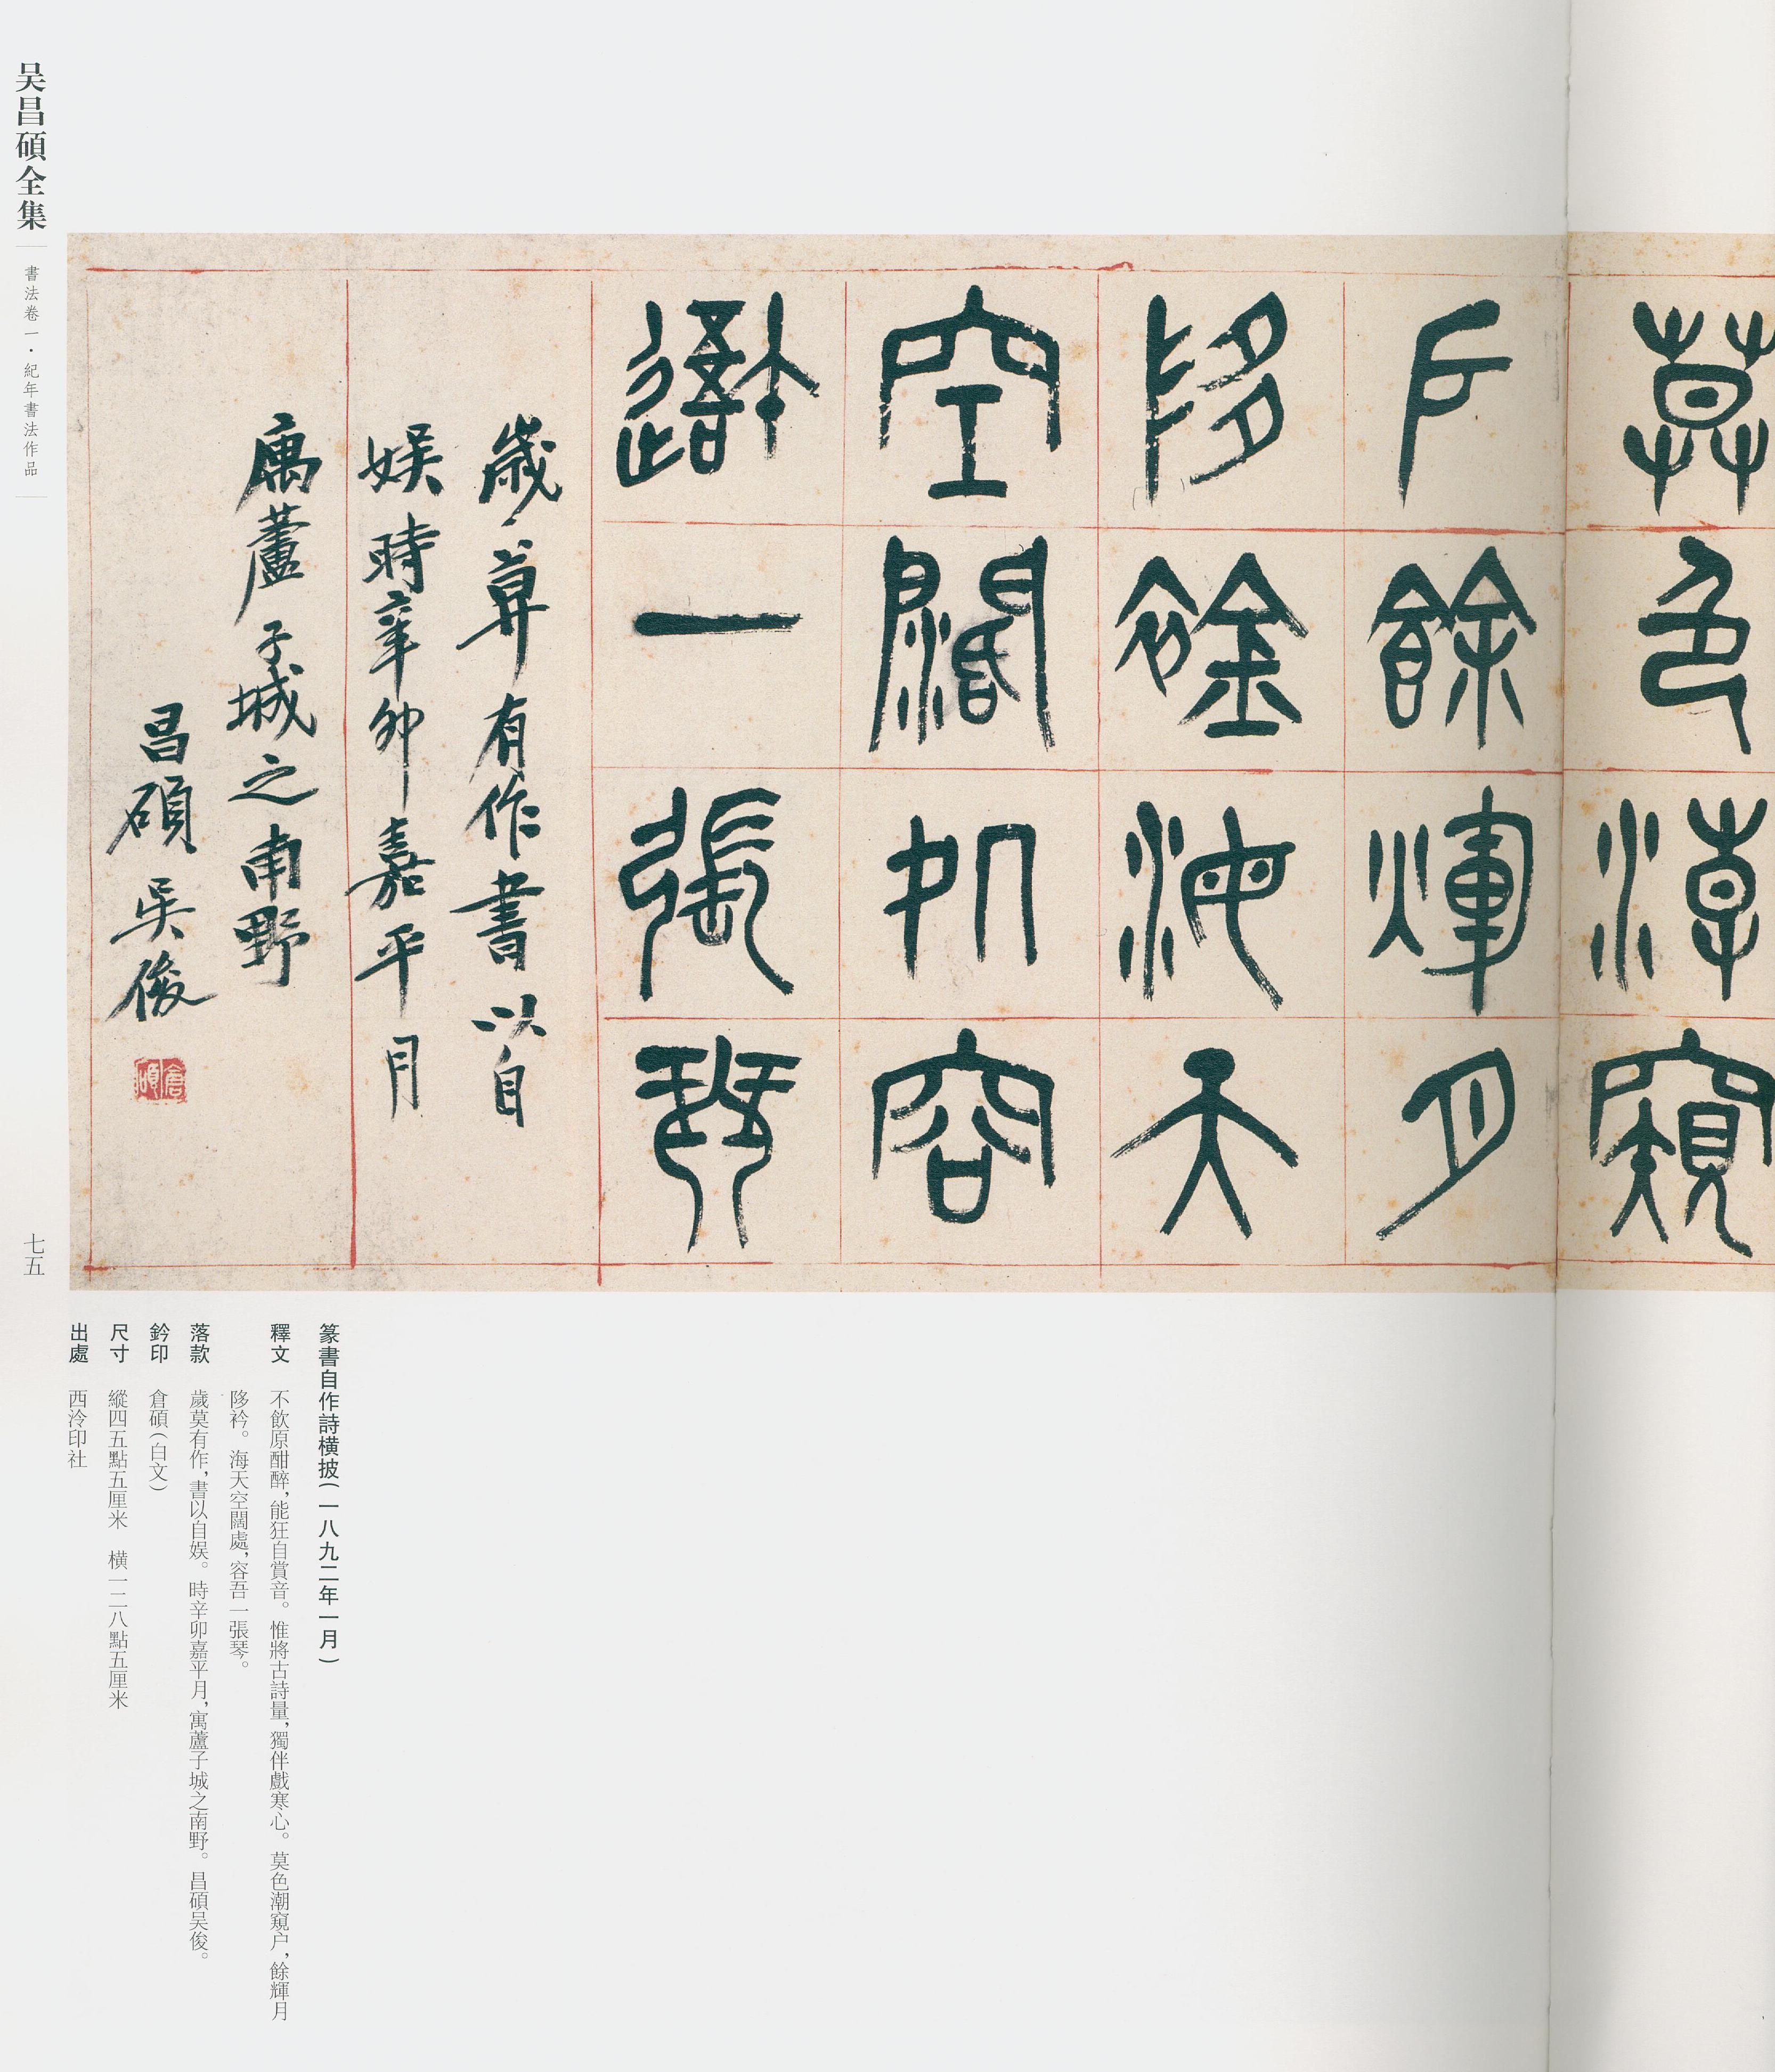 莫色潮窺
户餘煇月
陊衿海天
空闊処容
吾一張琴
歲莫有作書以自
娱時辛卯嘉平月
寓蘆子城之南野
昌碩吴俊
倉碩
篆書自作詩横披(一八九二年一月)
釋文 不飲原酣醉,能狂自賞音。惟將古詩量,獨伴戲寒心。莫色潮窺户,餘輝月
陊衿。海天空闊處,容吾一張琴。
落款 歲莫有作,書以自娱。時辛卯嘉平月,寓蘆子城之南野。昌碩吴俊。
鈐印 倉碩(白文)
尺寸 縱四五點五厘米 横一二八點五厘米
出處 西泠印社
吴昌碩全集
書法卷一·紀年書法作品
七五